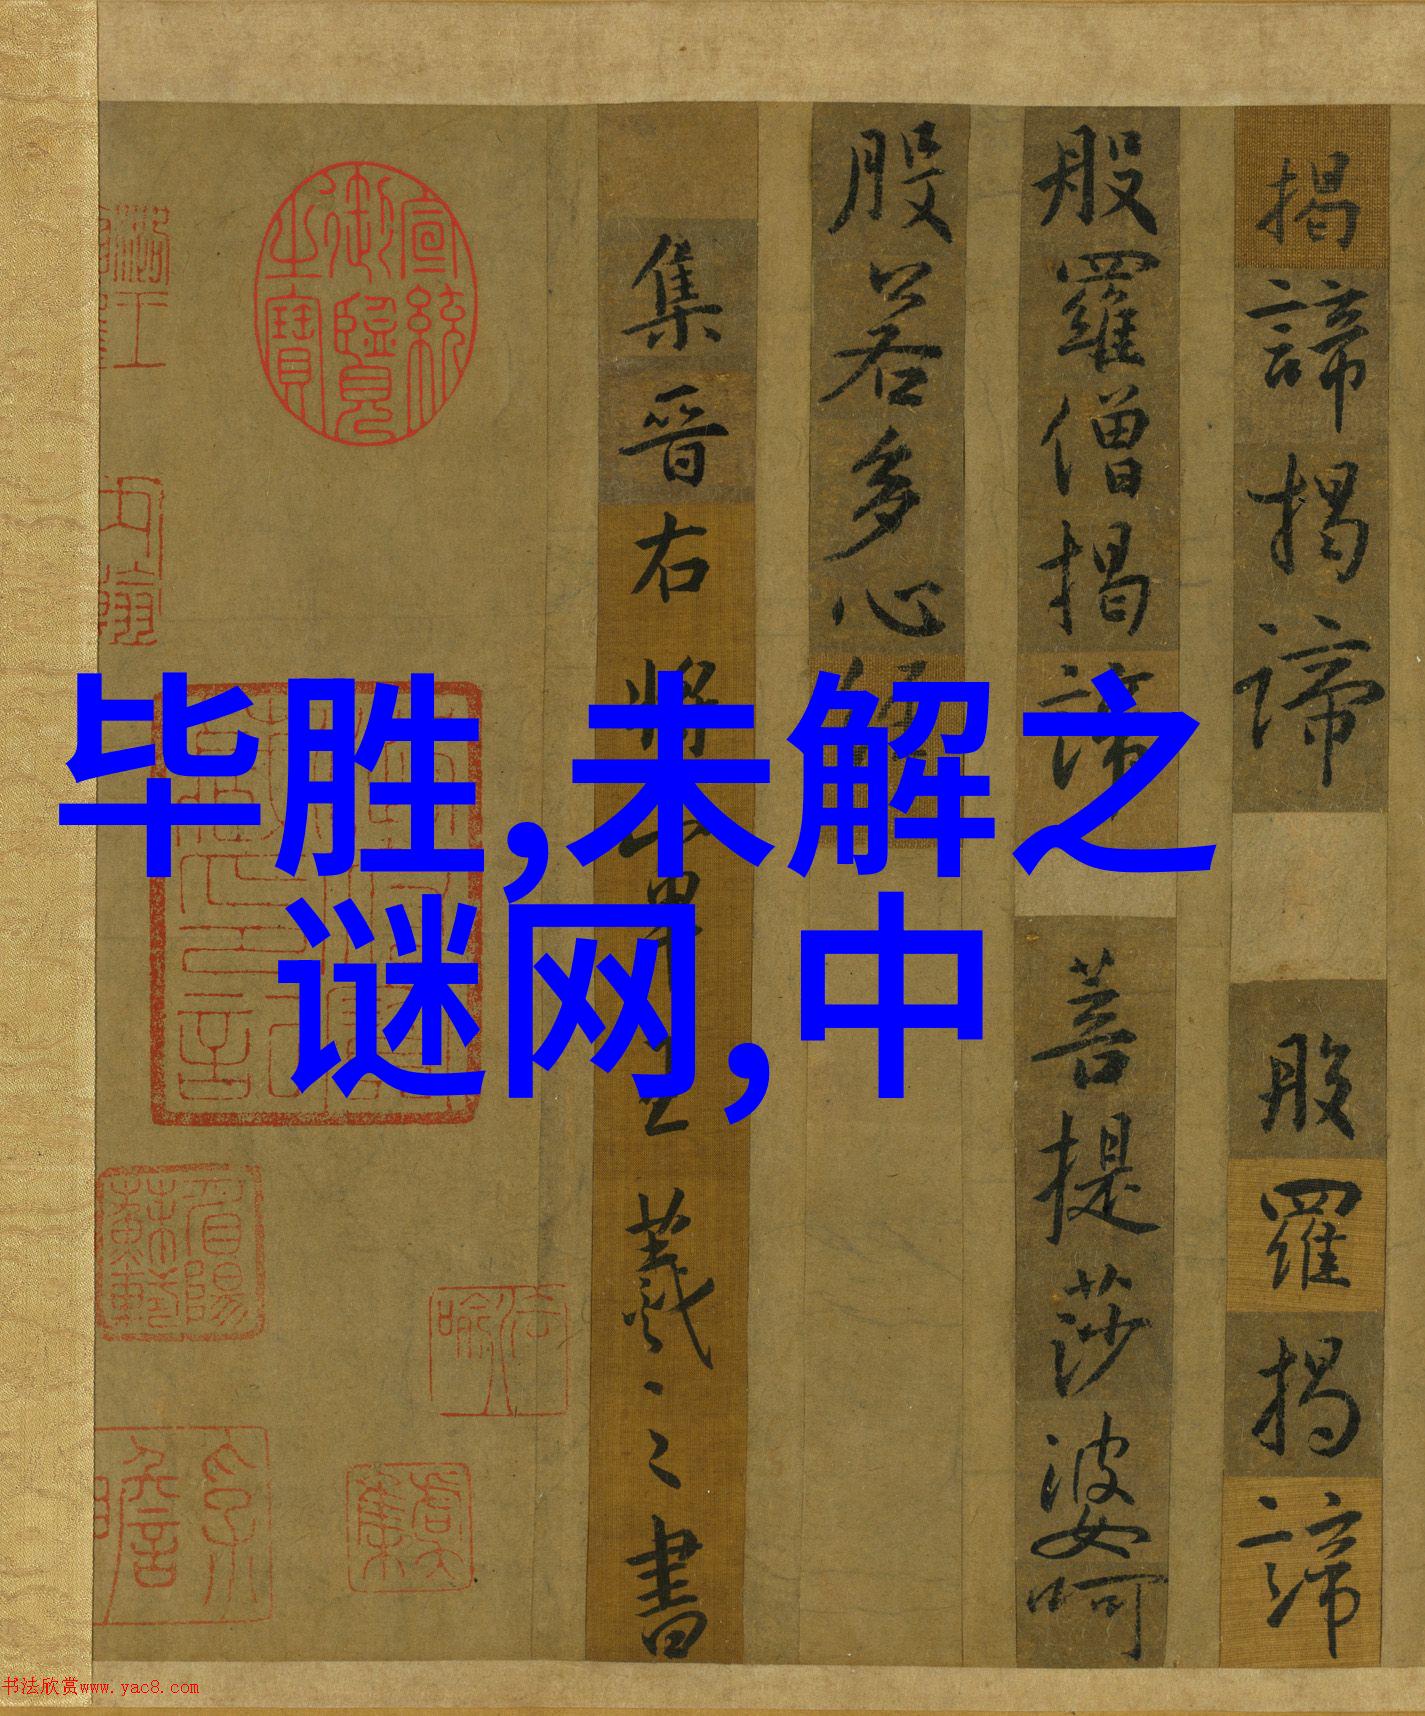 揭諦揭諦 般羅揭諦
般羅僧揭諦 菩提莎婆呵
般若多心經
集晉右將軍王羲之書
宣統御覽之寶
毕胜,未解之
谜网,中
书法欣赏www.yac8.com